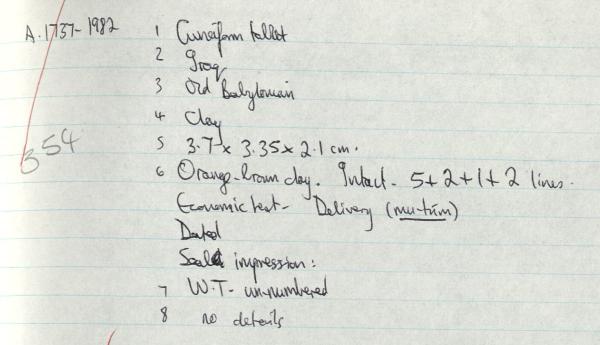 A.1737-1982 1 Cuneiform tablet
2 Iraq
3 Old Babylonian
4 Clay
354
5 3.7 x 3.35 x 2.1 cm.
6 Orange-brown clay. Intact - 5+2+1+2 lines.
Economic text - Delivery (mu-túm)
Dated
impression:
7 W.T- un-numbered
8 no details